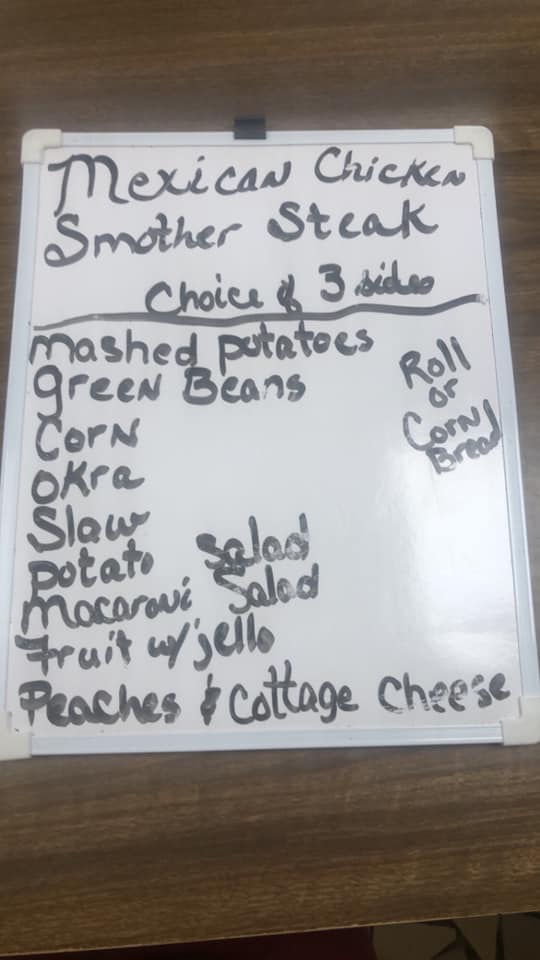 Mexican Chicken
Smother Steak
Choice of 3 sides
mashed potatoes
green Beans
Corn
okra
Slaw
potato salad
Macaroni Salad
Fruit w/ jello
Peaches & Cottage Cheese
Roll
or
Corn
Bread